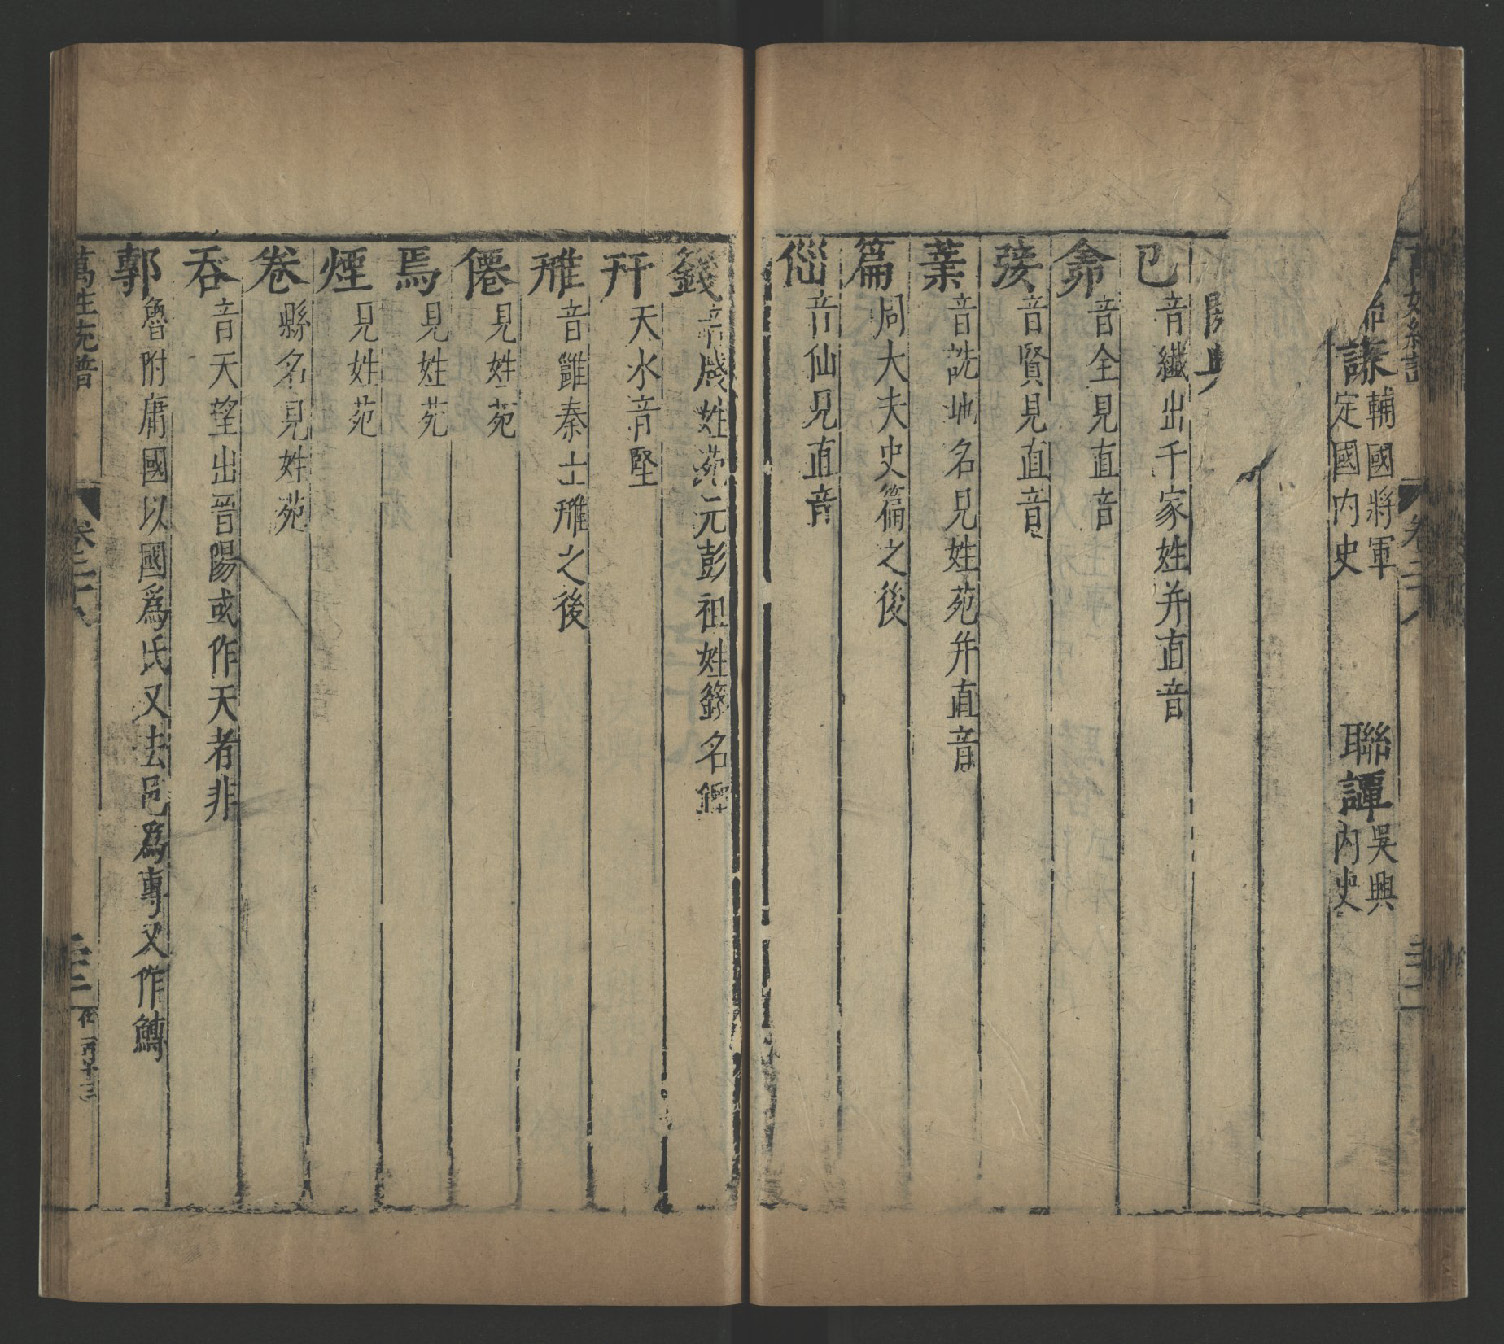 謙輔國將軍定國內史 聯譚吳興內史
巳音纎出千家姓并直音
龠音全見直音
音賢見直音
葉音詵地名見姓苑并直音
篇周大夫史篇之後
音仙見直音
籛音牋姓苑元彭祖姓籛名鏗
幵天水音堅
音雖秦士之後
僊見姓苑
焉見姓苑
煙見姓苑
卷縣名見姓苑
吞音天望出晉陽或作天者非
鄟魯附庸國以國爲氏又去邑爲專又作鱄
萬姓統譜
卷二十八